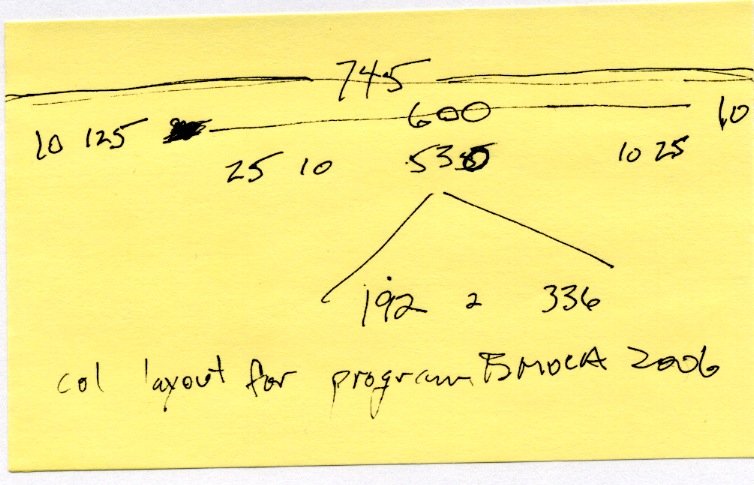 745
10 125 600 10
25 10 530 10 25
192 2 336
col layout for program BMOCA 2006